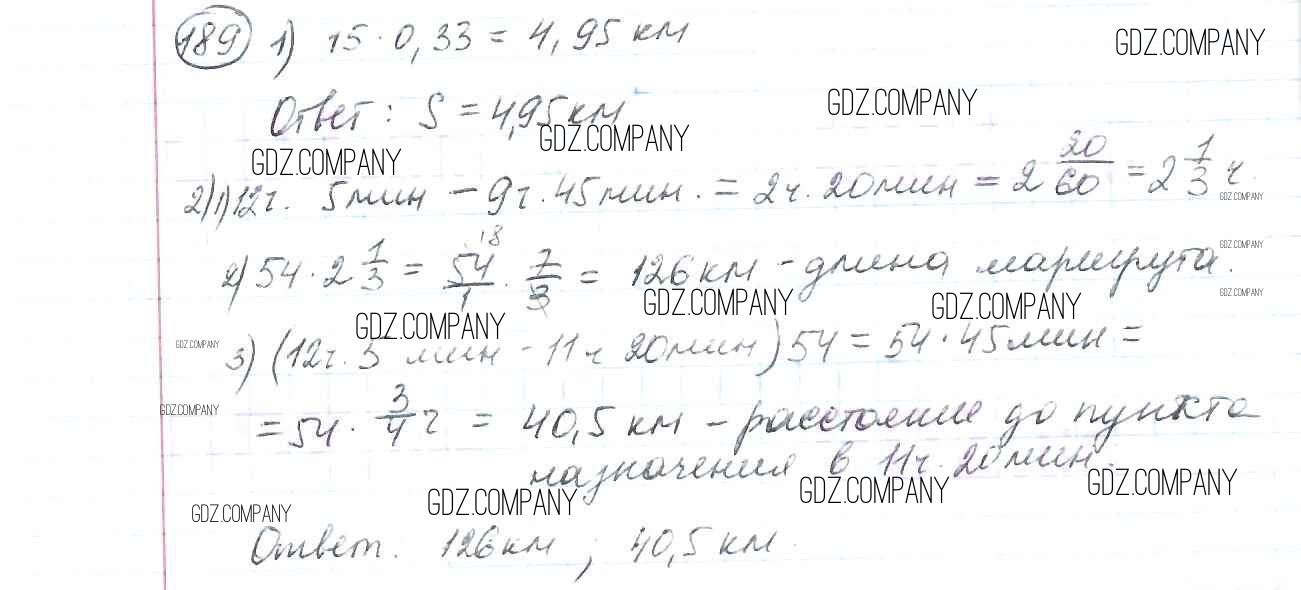 189 1) 15 · 0,33 = 4,95 км
GDZ.COMPANY
Ответ: S = 4,95 км
GDZ.COMPANY
GDZ.COMPANY
GDZ.COMPANY
2) 1) 12 ч. 5 мин – 9 ч. 45 мин. = 2 ч. 20 мин = 2 20/60 = 2 1/3 ч.
GDZ.COMPANY
2) 54 · 2 1/3 = 54/1 · 7/3 = 126 км - длина маршрута.
18
GDZ.COMPANY
GDZ.COMPANY
GDZ.COMPANY
GDZ.COMPANY
GDZ.COMPANY
GDZ.COMPANY
3) (12 ч. 5 мин - 11 ч 20 мин) 54 = 54 · 45 мин =
GDZ.COMPANY
= 54 · 3/4 ч = 40,5 км – расстояние до пункта
назначения в 11 ч. 20 мин.
GDZ.COMPANY
GDZ.COMPANY
GDZ.COMPANY
GDZ.COMPANY
Ответ. 126 км ; 40,5 км